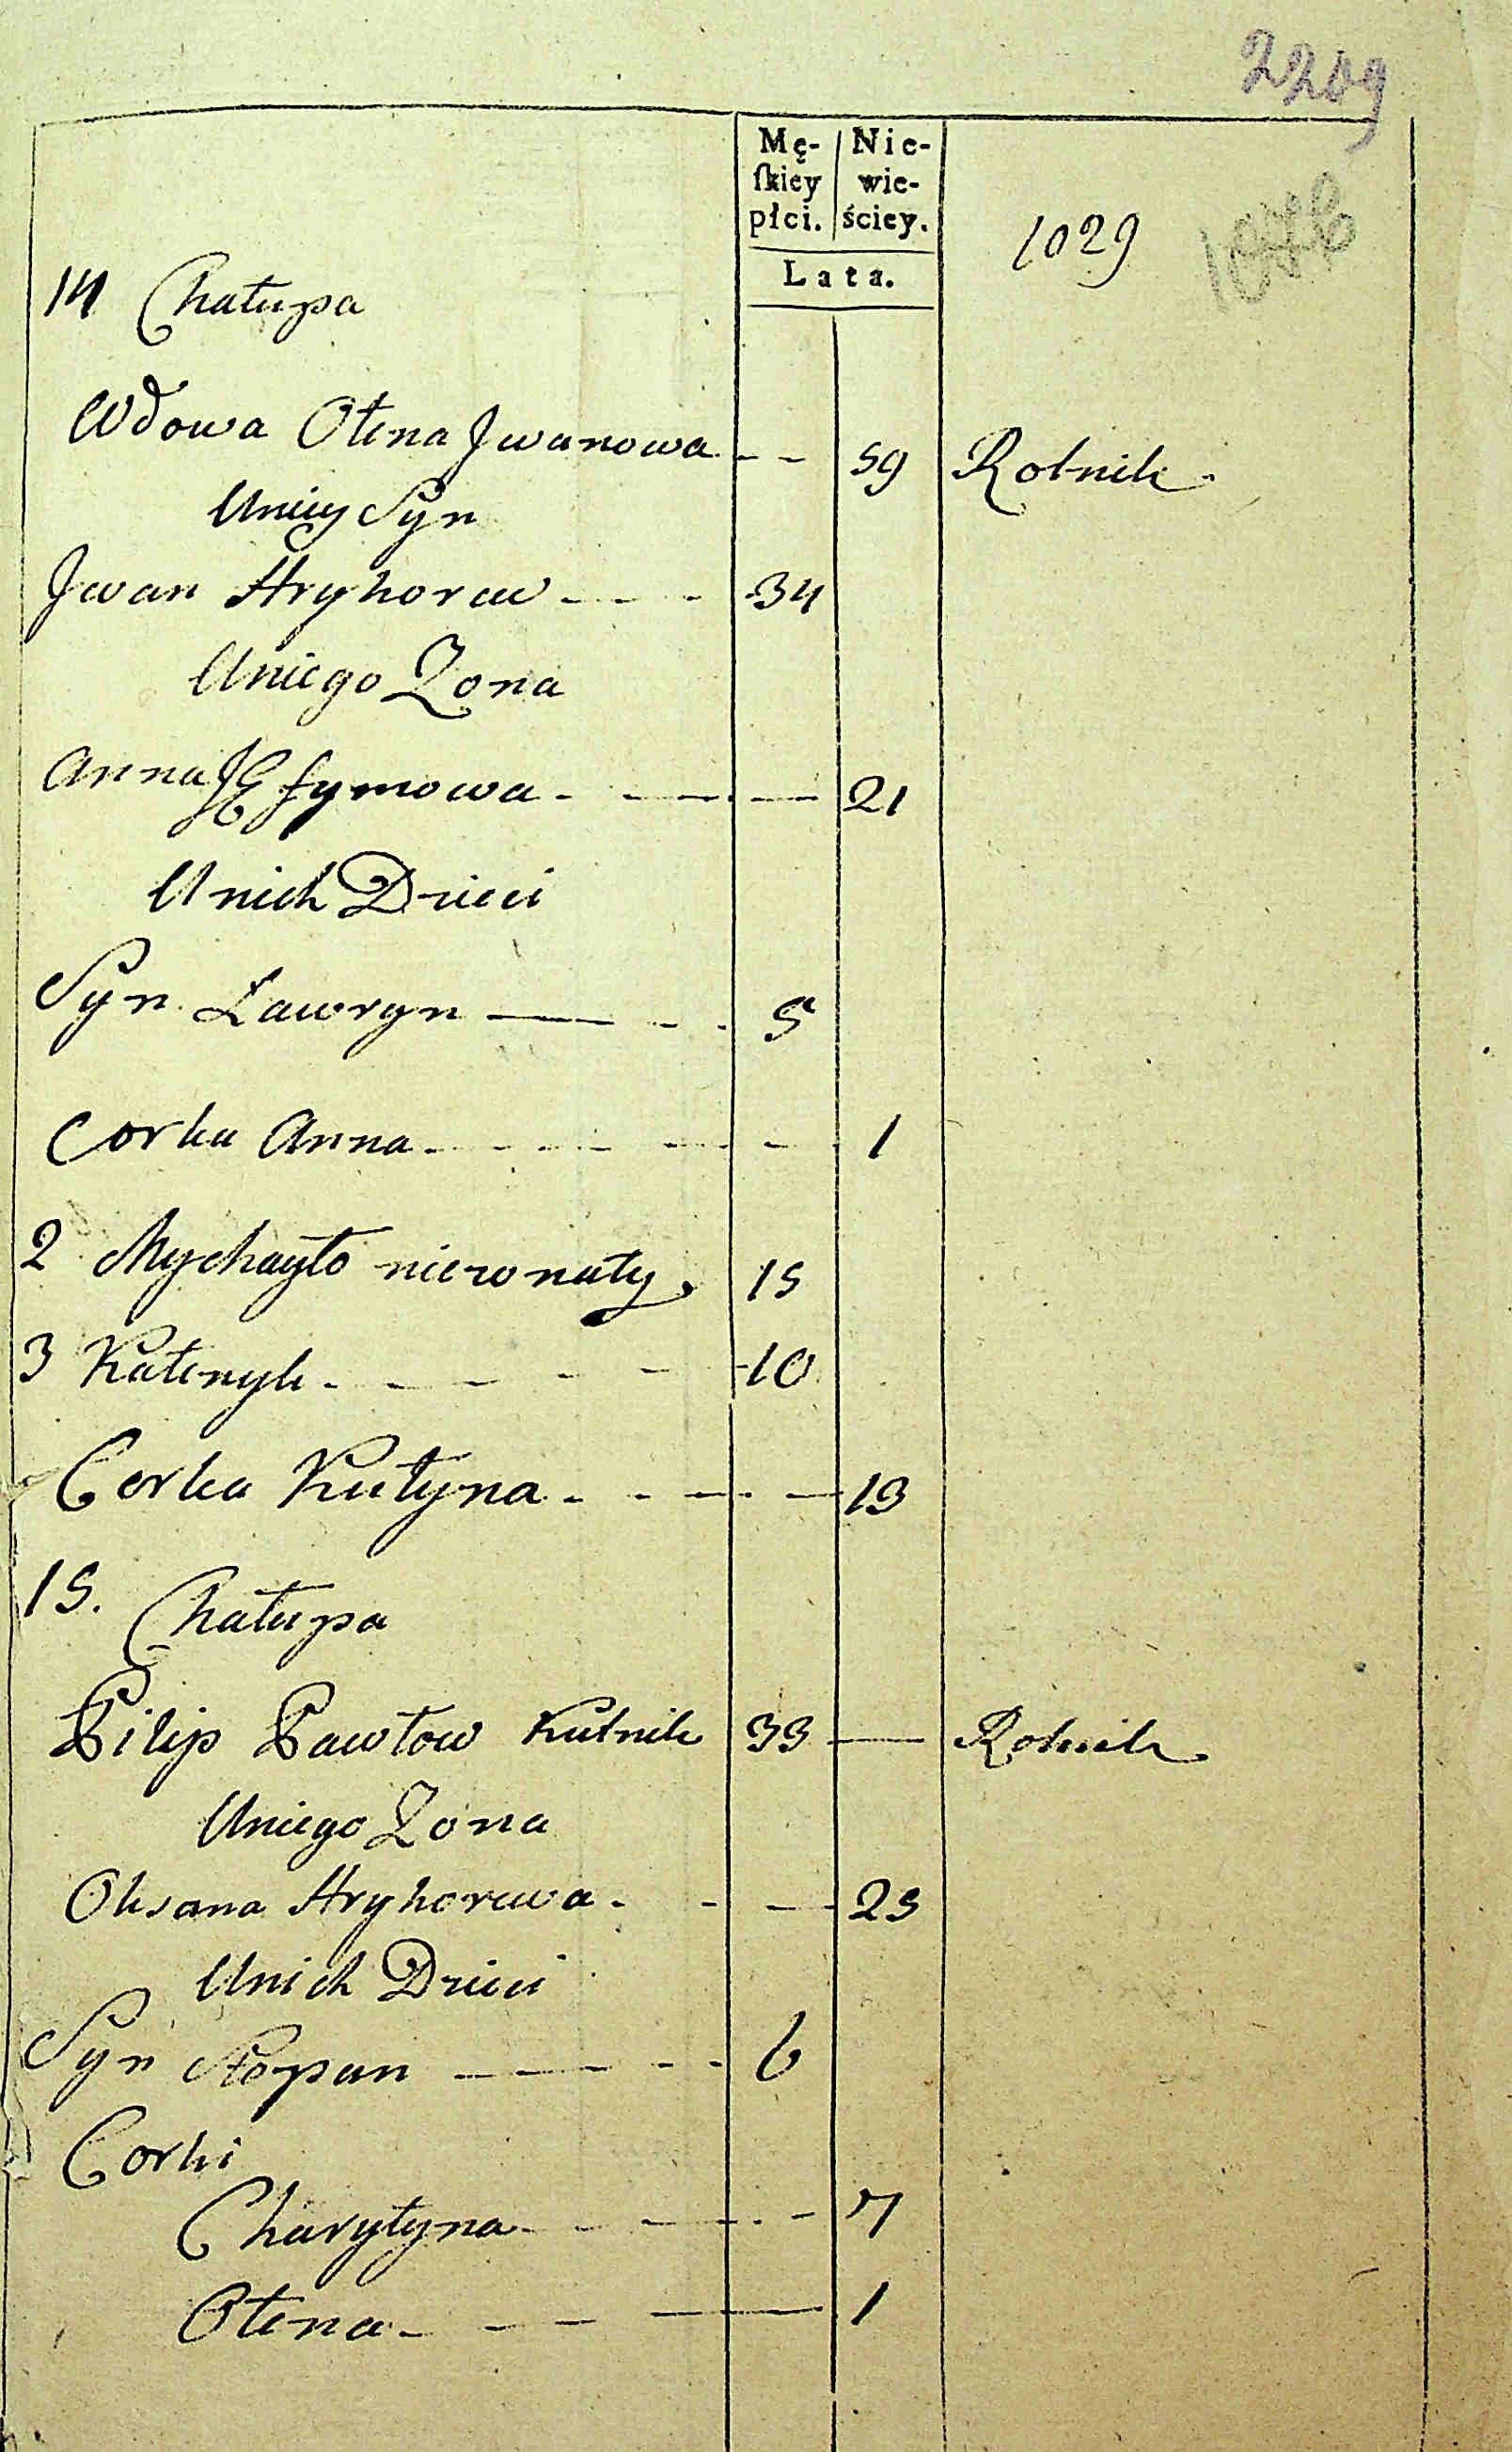 2209
Mę-
ſkiey
płci.
Nie-
wie-
ściey.
Lata.
1029
14 Chałupa
Wdowa Ołena Jwanowa - - 59 Rolnik
Uniey Syn
Jwan Hryhorew - - - 34
Uniego Zona
Anna Jefymowa - - - - 21
Unich Dzieci
Syn Ławryn - - - 5
Corka Anna - - - - - 1
2 Mychayło niezonaty 15
3 Kałenyk - - - - - 10
Corka Katyna - - - - 13
15. Chałupa
Pilip Pawłow Kutnik 33 — Rolnik
Uniego Zona
Oksana Hryhorewa - - - 25
Unich Dzieci
Syn Stepan - - - - 6
Corki
Charytyna - - - - - 7
Ołena - - - - - 1